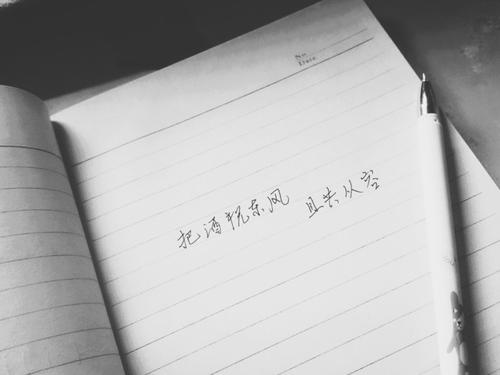 No.
Date
把酒祝东风 且共从容